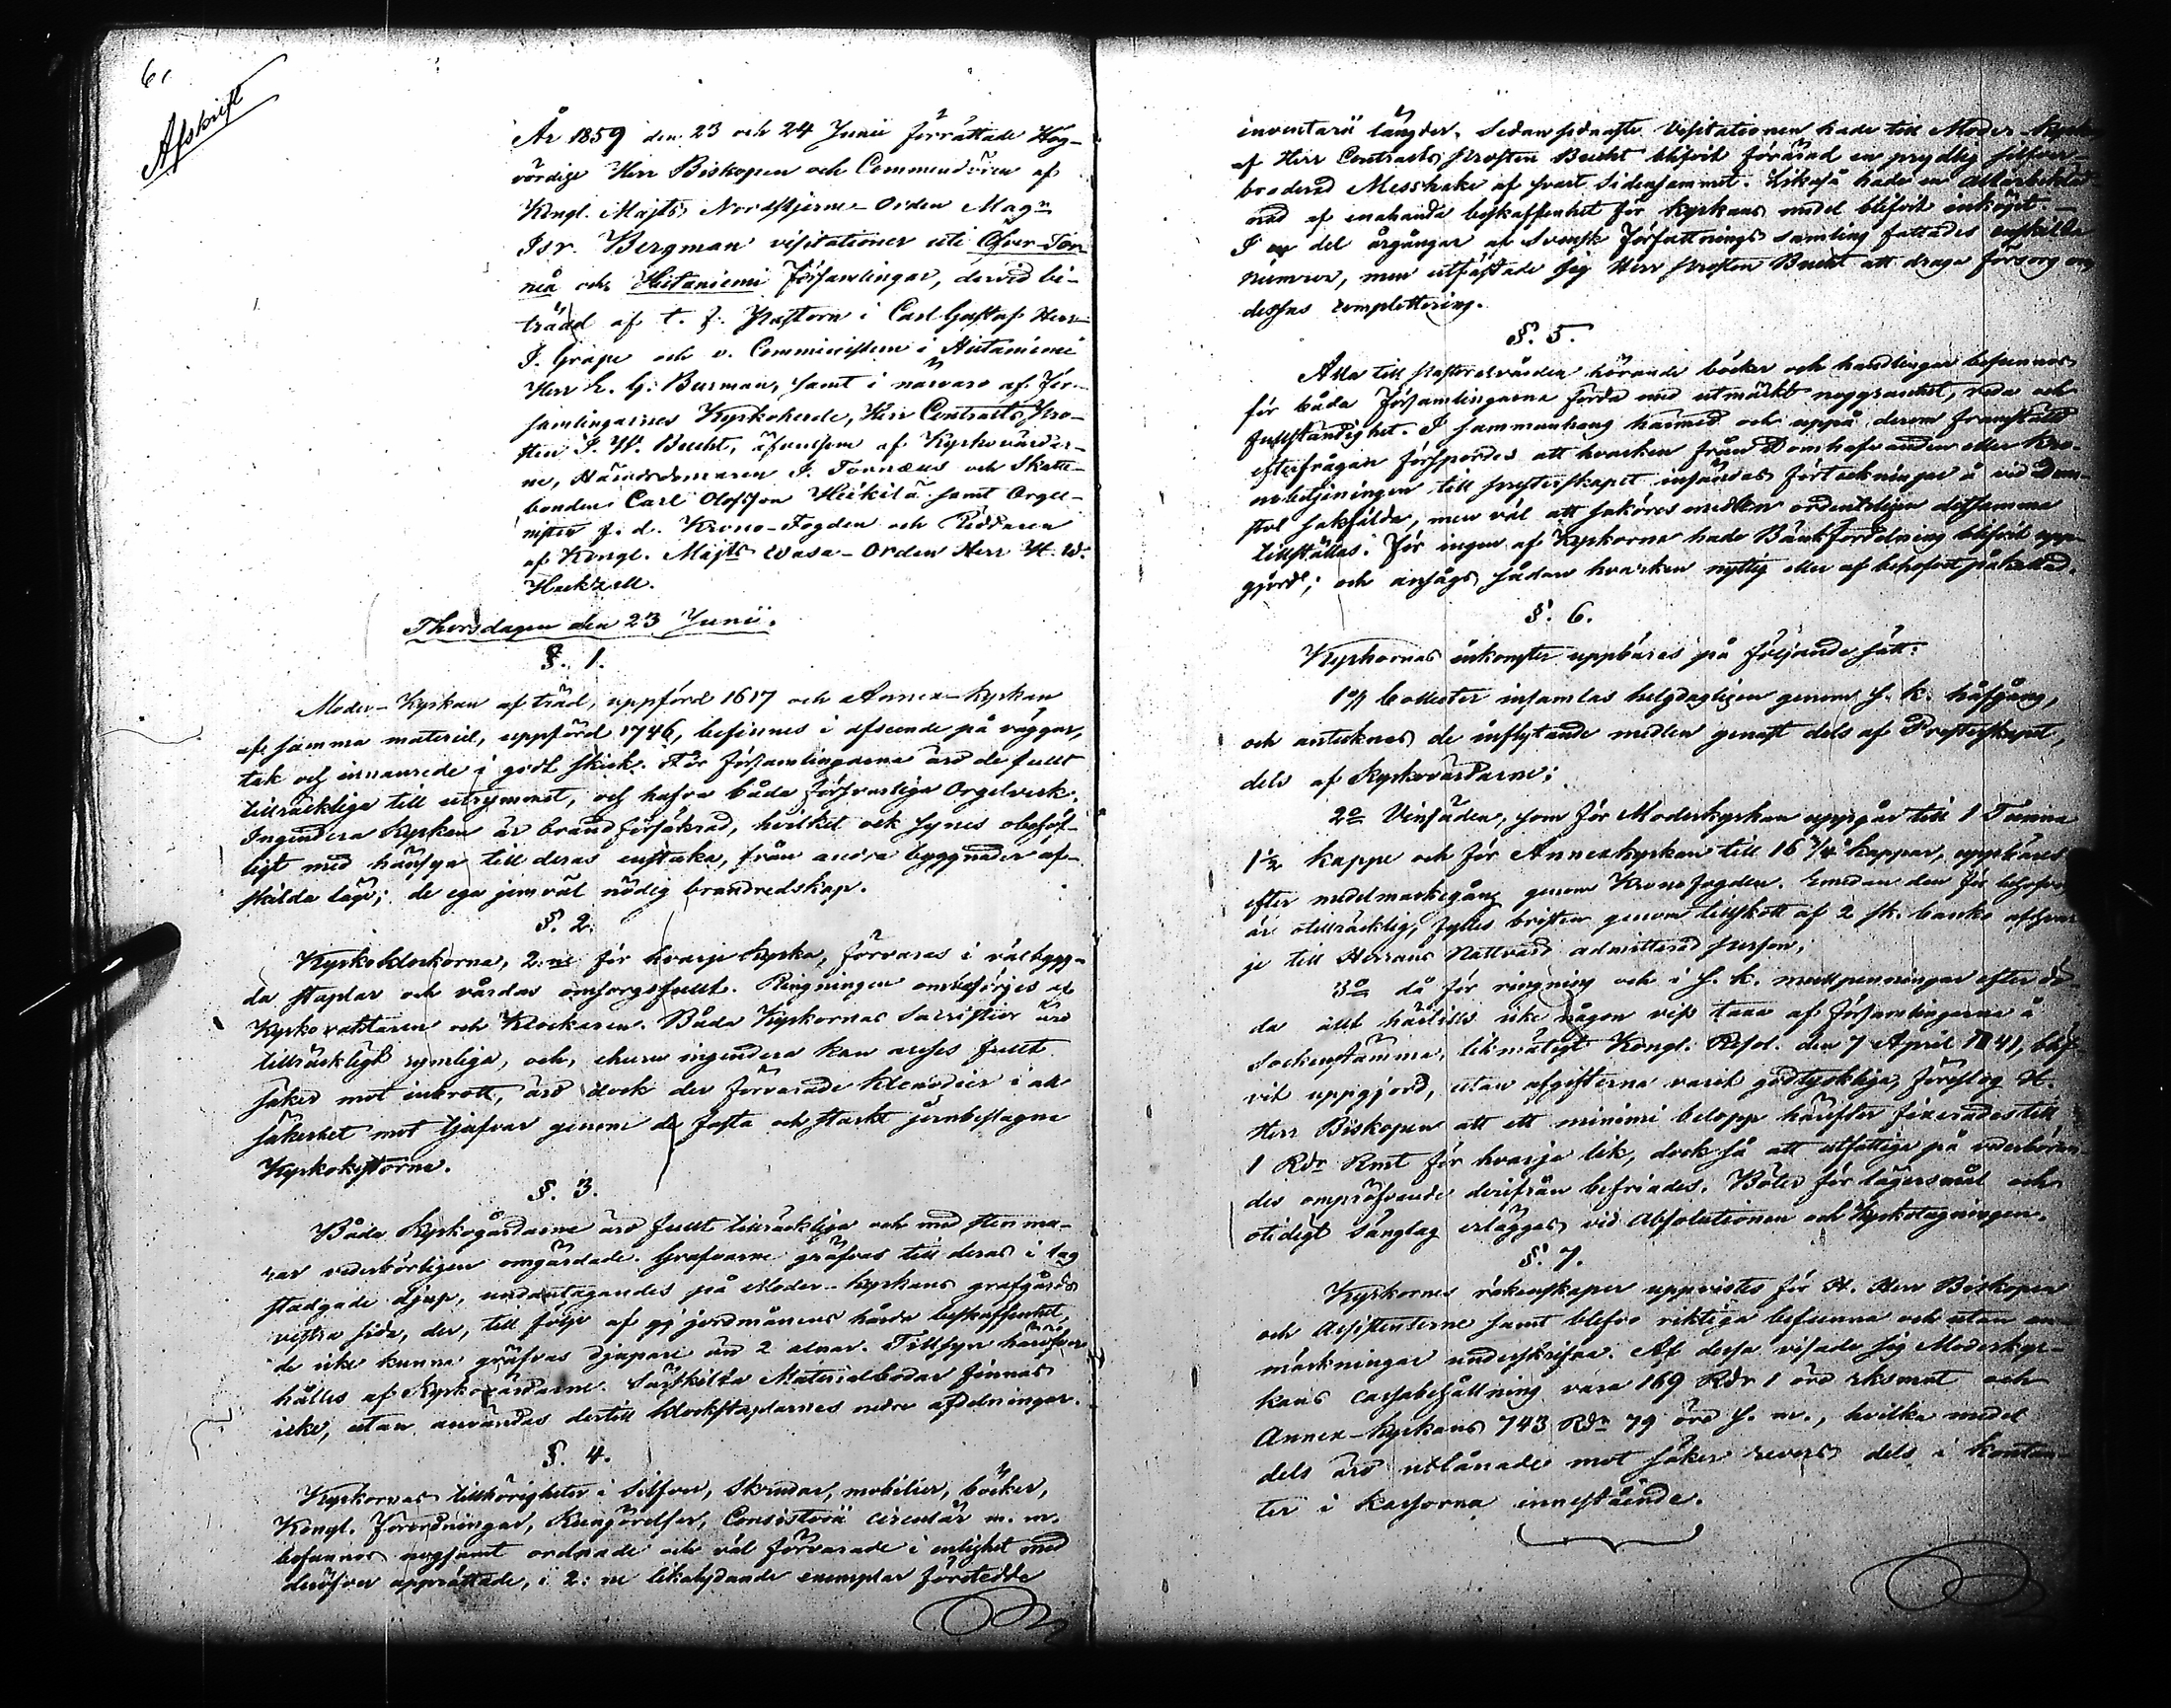 61
Afskrift
År 1859 den 23 och 24 Junii förrättade Hög-
vördige Herr Biskopen och Commendören af
Kongl. Majts Nordstjerne-Orden Magn
Isr. Bergman visitationer uti Öfver-Tor-
neå och Hietaniemi Församlingar, dervid bi-
trädd af t. f. Pastorn i Carl Gustaf Herr
I. Grape och v. Comministern i Hietaniemi
Herr L. G. Burman, samt i närvaro af För-
samlingarnes Kyrkoherde, Herr Contracts Pro-
sten J. W. Bucht, äfvensom af Kyrkovärdar-
ne, Nämndemannen I. Tornæus och Skatte-
bonden Carl Olofsson Heikilä samt Orga-
nisten f. d. Krono-Fogden och Riddaren
af Kongl. Majts Wasa-Orden Herr H. W.
Hackzell.
Thorsdagen den 23 Junii.
§. 1.
Moder-Kyrkan af träd, uppförd 1617 och Annex-Kyrkan
af samma materiel, uppförd 1746, befinnes i afseende på väggar,
tak och innanrede i godt skick. För församlingarna äro de fullt
tillräckliga till utrymmet, och hafva båda försvarliga Orgelverk.
Ingendera Kyrkan är brandförsäkrad, hvilket ock synes obehöf-
ligt med hänsyn till deras enstaka, från andra byggnader af-
skilda läge; de ega jemväl nödig brandredskap.
§. 2.
Kyrkoklockorna, 2:ne för hvarje Kyrka, förvaras i väl bygg-
da staplar och vårdas omsorgsfullt. Ringningen ombesörjes af
Kyrkovaktaren och Klockaren. Båda Kyrkornas Sacristior äro
tillräckligt rymliga, och, ehuru ingendera kan anses fullt
säker mot inbrott, äro dock der förvarade klenodier i all
säkerhet mot tjufvar genom de fasta och starkt jernbeslagne
Kyrkokistorna.
§. 3.
Båda Kyrkogårdarne äro fullt tillräckliga och med stenmu-
rar vederbörligen omgärdade. Grafvarne gräfvas till deras i lag
stadgade djup, undantagandes på Moder-Kyrkans grafgårds
vestra sida, der, till följe af jordmånens hårda beskaffenhet,
de icke kunna gräfvas djupare än 2 alnar. Tillsyn häröfver
hålles af Kyrkovärdarne. Särskilda Materialbodar finnas
icke, utan användas dertill klockstaplarnes nedre afdelningar.
§. 4.
Kyrkornas tillhörigheter i Silfver, Skrudar, mobilier, böcker,
Kongl. Förordningar, Kungörelser, Consistorii circulär m. m.
befunnos nogsamt ordnade och väl förvarade i enlighet med
deröfver upprättade, i 2:ne likalydande exemplar företedde
inventarii längder. Sedan sednaste Visitationen hade till Moder-Kyrkan
af Herr Contracts Prosten Bucht blifvit förärad en prydlig silfver-
broderad Messhake af svart Sidensammet. Likaså hade en Altarbekläd-
nad af enahanda beskaffenhet för kyrkans medel blifvit inköpt.
I en del årgångar af Svensk Författnings samling fattades enskilda
numror, men utfästade sig Herr Prosten Bucht att draga försorg om
dessas complettering.
§. 5.
Alla till Pastorsvården hörande böcker och handlingar befunnos
för båda Församlingarna förda med utmärkt noggranhet, reda och
fullständighet. I sammanhang härmed och uppå derom framställd
efterfrågan försporder att hvarken från Domhafvanden eller Kro-
nobetjeningen till presterskapet insändas förteckningar å vid Dom-
stol sakfälda, men väl att saköresmedlen ordentligen detsamma
tillställas. För ingen af Kyrkorna hade Bänkfördelning blifvit upp-
gjord; och ansågs sådan hvarken nyttig eller af behofvet påkallad.
§. 6.
Kyrkornas inkomster uppbäres på följande sätt:
1o Collecter insamlas helgdagligen genom s. k. håfgång,
och antecknas de inflytande medlen genast dels af Presterskapet,
dels af Kyrkovärdarne;
2o Vinsäden, som för Moderkyrkan uppgår till 1 Tunna
1½ kappe och för Annexkyrkan till 16 3/4 kappar, uppbäres
efter medelmarkegång genom Kronofogden. Emedan den för behofvet
är otillräcklig, fylles bristen genom tillskott af 2 sk. banko af hvar
je till Herrans Nattvard admitterad person;
3o då för ringning och i s. k. mullpenningar efter dö-
da allt härtills icke någon viss taxa af församlingarna å
Sockenstämma, likmätigt Kongl. Resol. den 7 April 1841, blif-
vit uppgjord, utan afgifterna varit godtyckliga, föreslog H.
Herr Biskopen att ett minimi belopp härefter fixerades till
1 Rdr Rmt för hvarje lik, dock så att utfattiga på vederböran-
des ompröfvande derifrån befriades. Böter för lägersmål och
otidigt sänglag erlägges vid Absolutionen och Kyrkotagningen.
§. 7.
Kyrkornes räkenskaper uppvistes för H. Herr Biskopen
och Assistenterne samt blefvo riktiga befunna och utan an-
märkningar underskrifna. Af dessa visade sig Moderkyr-
kans cassabehållning vara 169 Rdr 1 öre rksmnt och
Annex-Kyrkans 743 Rdr 79 öre s. m., hvilka medel
dels äro utlånade mot säker revers dels i kontan-
ter i Kassorna innestående.